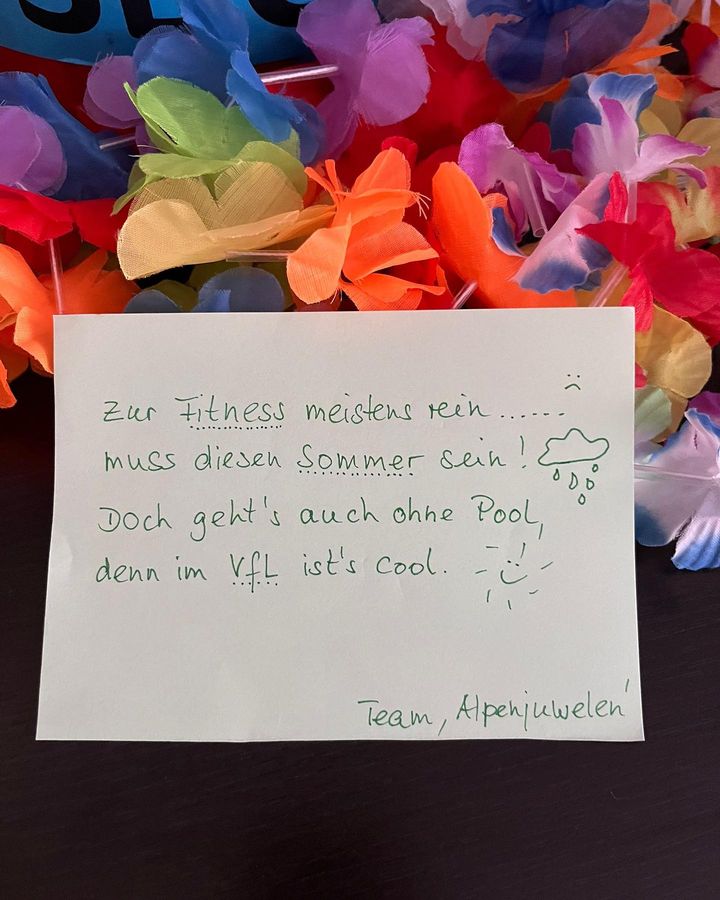 Zur Fitness meistens rein ......
muss diesen Sommer sein!
Doch geht's auch ohne Pool,
denn im VfL ist's cool.
Team ,Alpenjuwelen'